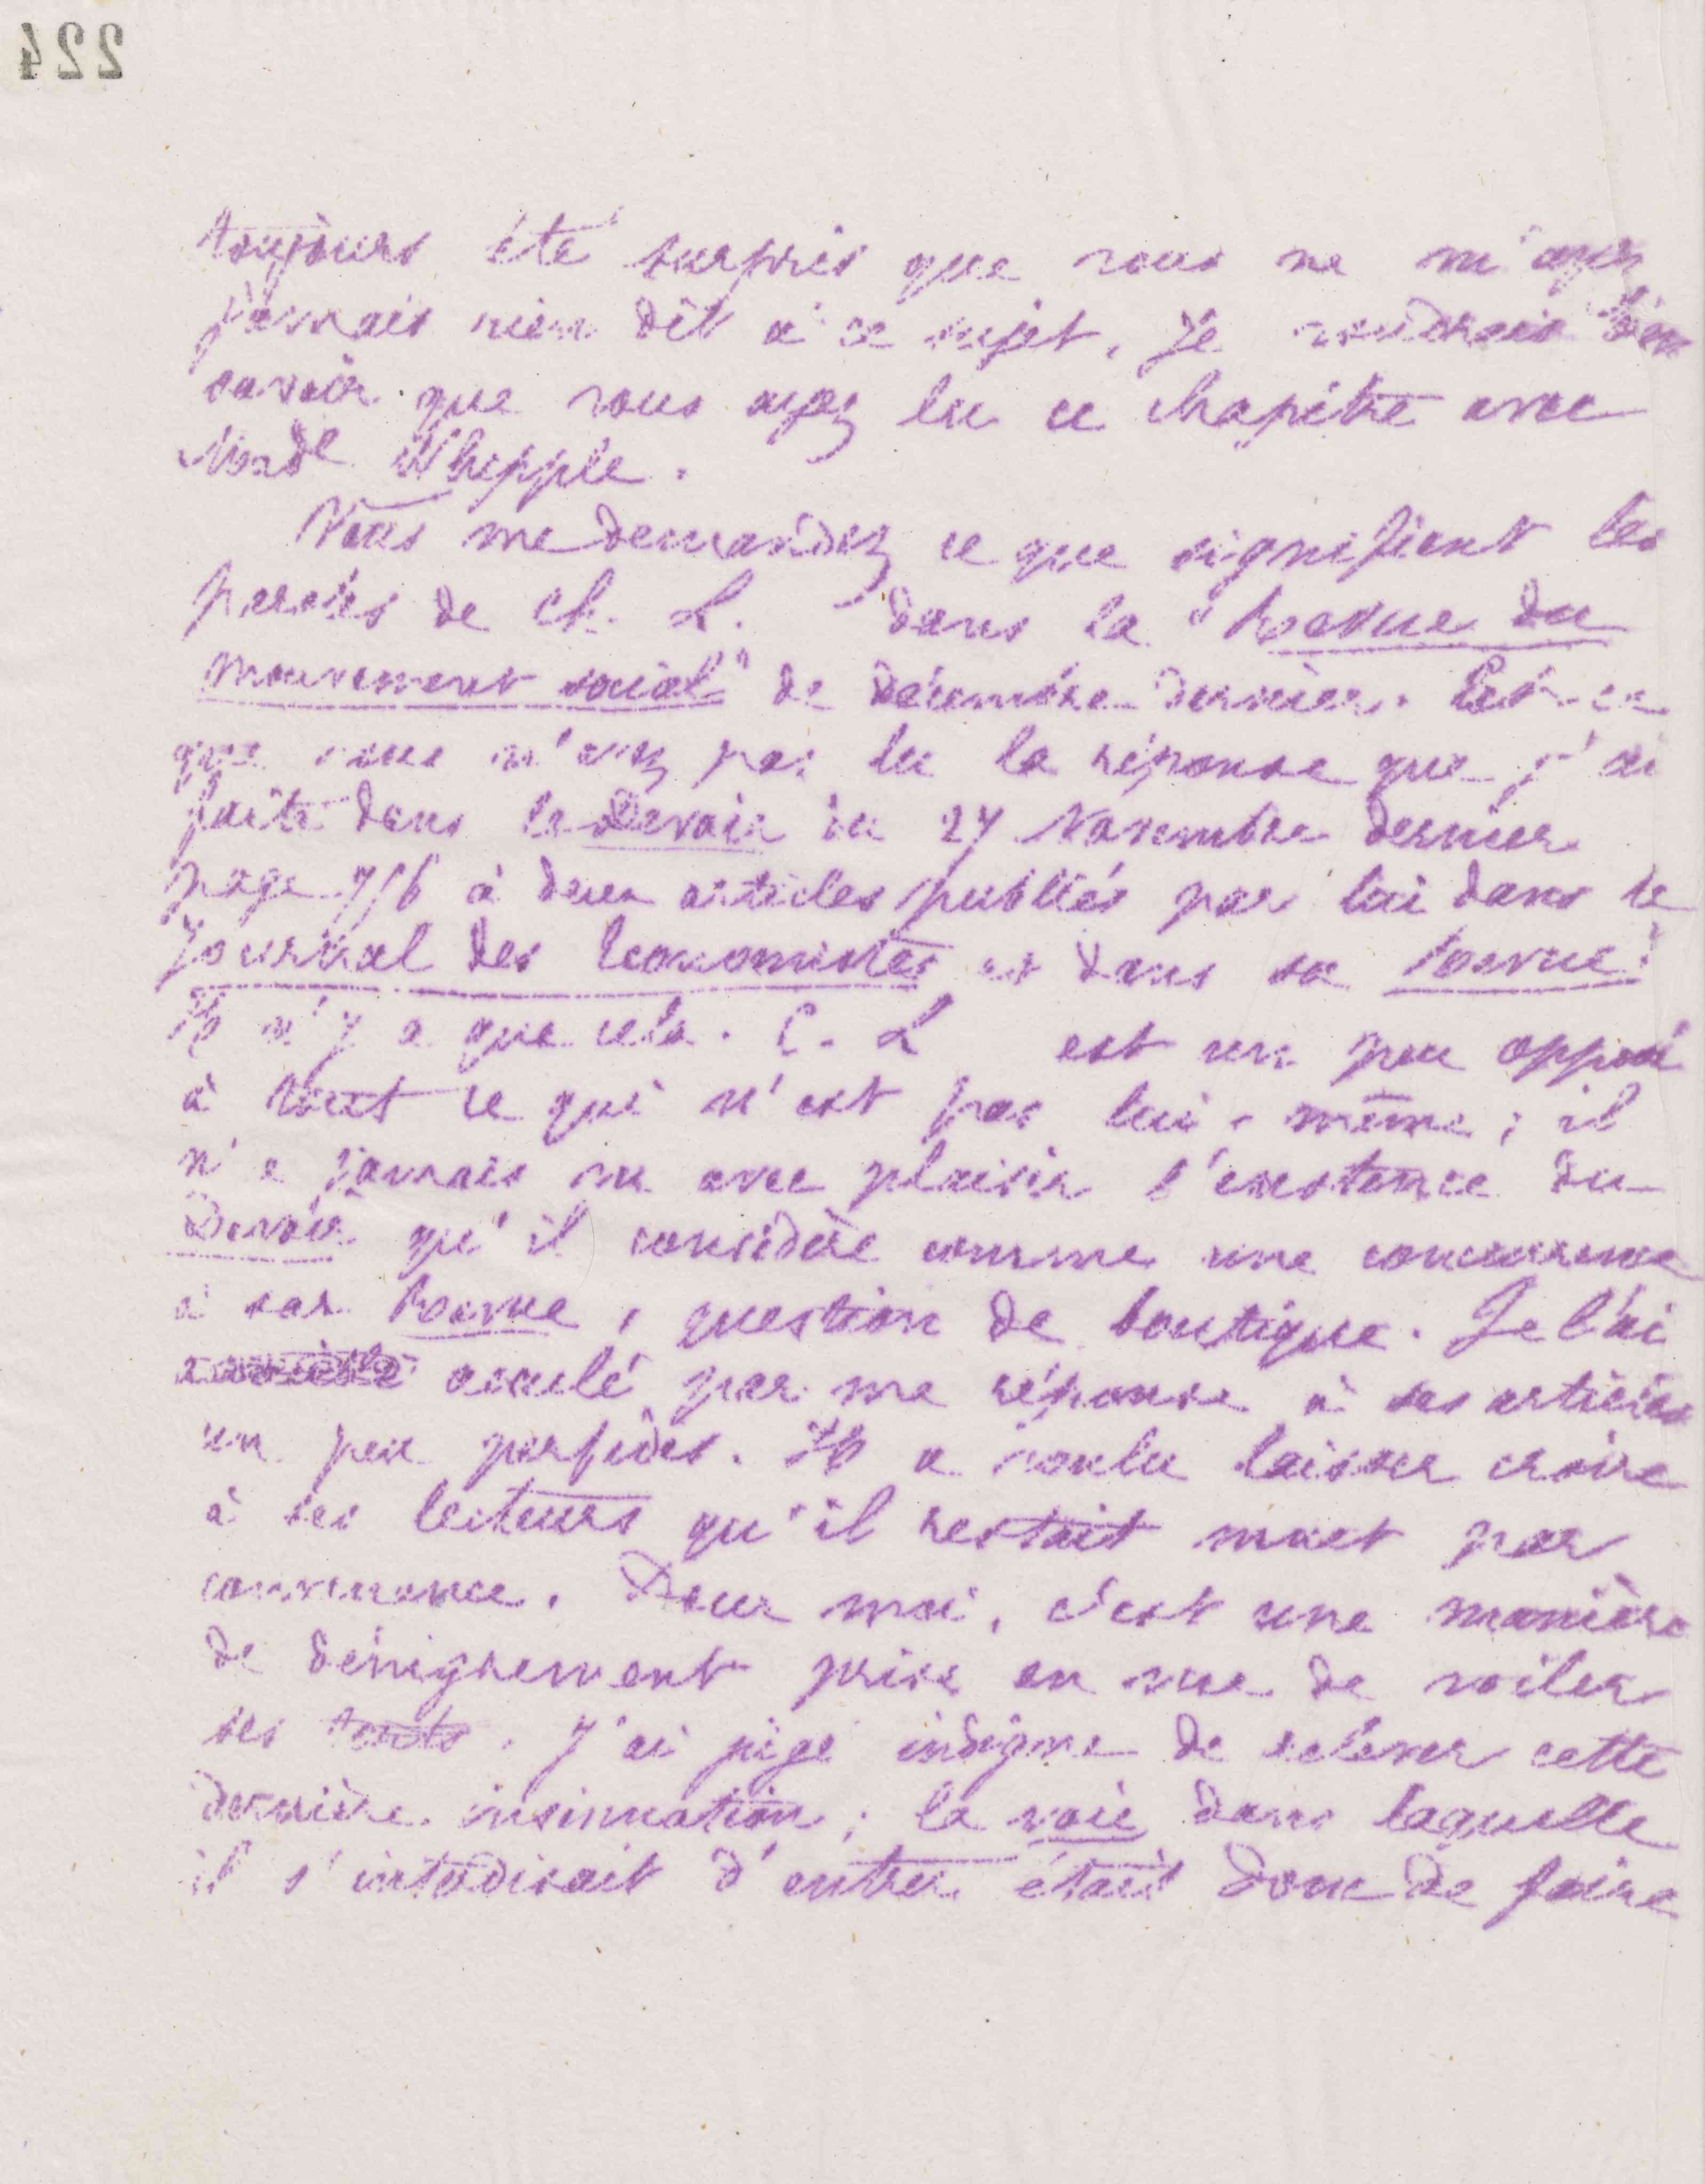 224
toujours été surpris que vous ne m'ayez
jamais rien dit à ce sujet. Je voudrais bien
savoir que vous ayez lu ce chapitre avec
Made Whipple.
Vous me demandez ce que signifient les
paroles de Ch. L. dans la "Revue du
mouvement social" de décembre dernier. Est-ce
que vous n'avez pas lu la réponse que j'ai
faite dans le Devoir du 27 Novembre dernier
page 716 à deux articles publiés par lui dans le
Journal des Economistes et dans sa Revue?
Il n'y a que cela. C. L est un peu opposé
à tout ce qui n'est pas lui-même; il
n'a jamais vu avec plaisir l'existence du
Devoir qu'il considère comme une concurrence
à sa Revue, question de boutique. Je l'ai
acculé par ma réponse à ses articles
un peu perfides. Il a voulu laisser croire
à ses lecteurs qu'il restait muet par
convenance. Pour moi, c'est une manière
de dénigrement prise en vue de voiler
ses torts. J'ai jugé indigne de relever cette
dernière insinuation; la voie dans laquelle
il s'interdisait d'entrer était donc de faire